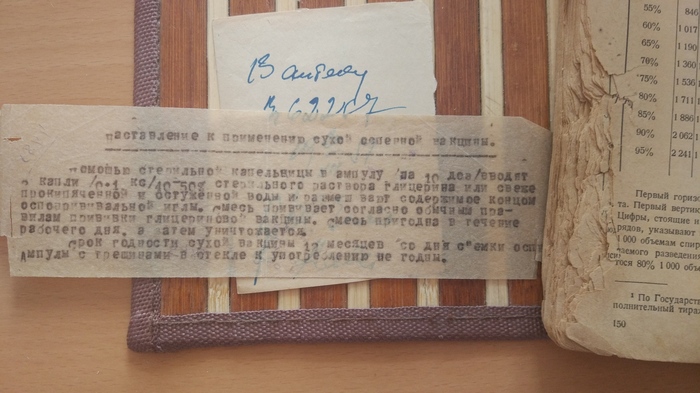 В аптеку
наставление к применению сухой оспенной вакцины.
помощью стерильной капельницы в ампулу /за 10 доз/вводят
капли /0.1 кс/10-50% стерильного раствора глицерина или свеже
прокипяченной и остуженной воды и размеш вают содержимое концом
оспопрививальной иглы. Смесь прививает согласно обычным пра-
вилам прививки глицериновой вакцины. Смесь пригодна в течение
рабочего дня, а затем уничтожается.
Срок годности сухой вакцины 12 месяцев со дня с'емки осп
Ампулы с трещинами в стекле к употреблению не годны.
55% 846
60% 1 017
65% 1 190
70% 1 360
75% 1 536
80% 1 711
85% 1 886
90% 2 062
95% 2 241
Первый горизо
та. Первый верти
Цифры, стоящие н
рядов, указывают
1 000 объемам спир
аемого разведени
тося 80% 1 000 объ
По Государст
полнительный тираж
150